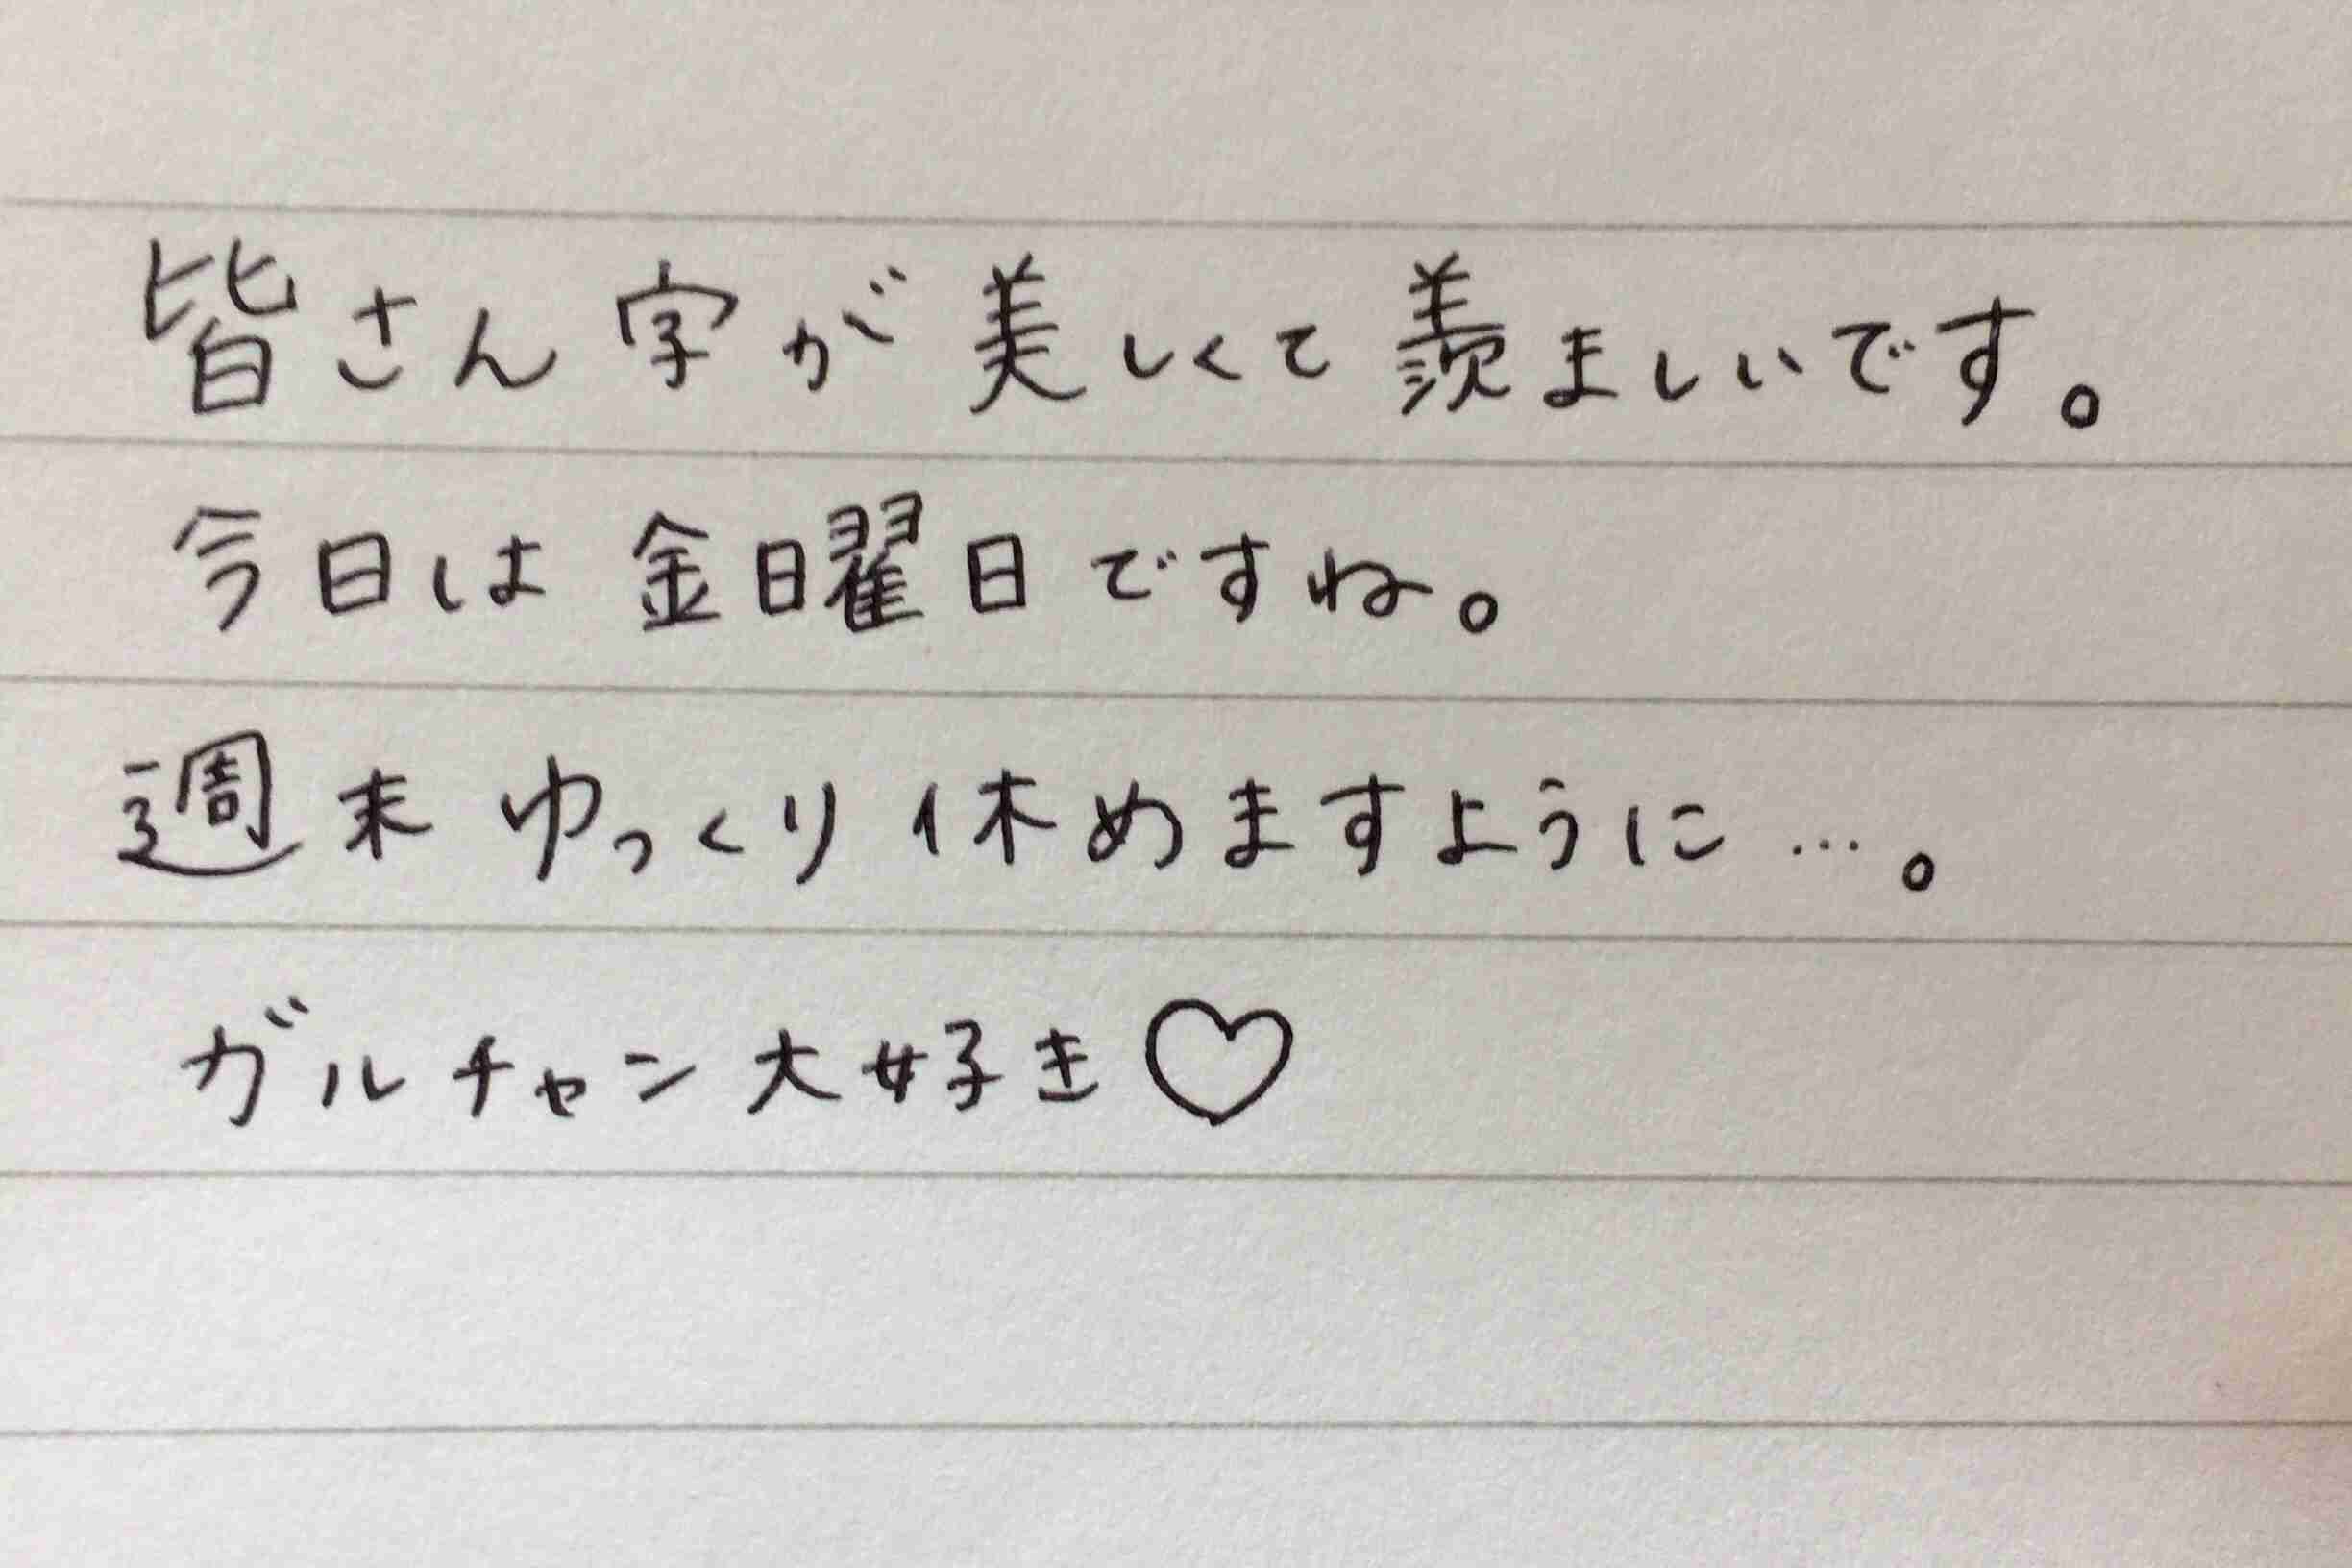 皆さん字が美しくて羨ましいです。
今日は金曜日ですね。
週末ゆっくり休めますように…。
ガルチャン大好き♡